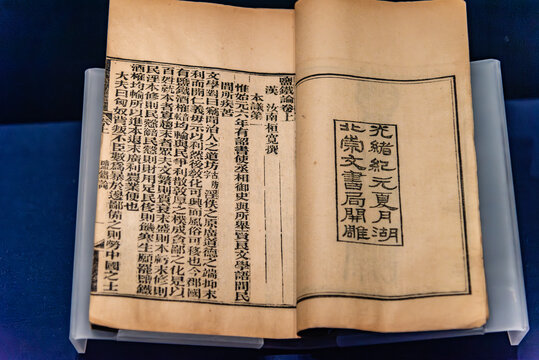 光緒紀元夏月湖
北崇文書局開雕
鹽鐵論卷上
漢 汝南桓寬撰
本議第一
惟始元六年有詔書使丞相御史與所舉賢良文學語問民
間所疾苦
文學對曰竊聞治人之道坊淫佚之原廣道德之端抑末
利而開仁義毋示以利然後教化可興而風俗可移也今郡國
有鹽鐵酒榷均輸與民爭利散敦厚之樸成貪鄙之化是以
百姓就本者寡趨末者眾夫文繁則質衰末盛則本虧末修則
民淫本修則民愨民愨則財用足民侈則饑寒生願罷鹽鐵
酒榷均輸所以進本退末廣利農業便也
大夫曰匈奴背叛不臣數為暴於邊鄙備之則勞中國之士